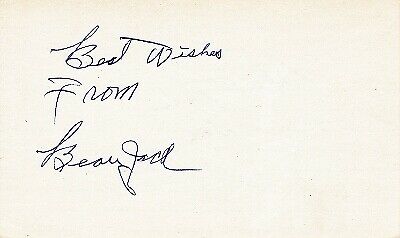 Best Wishes
From
Beau Jack